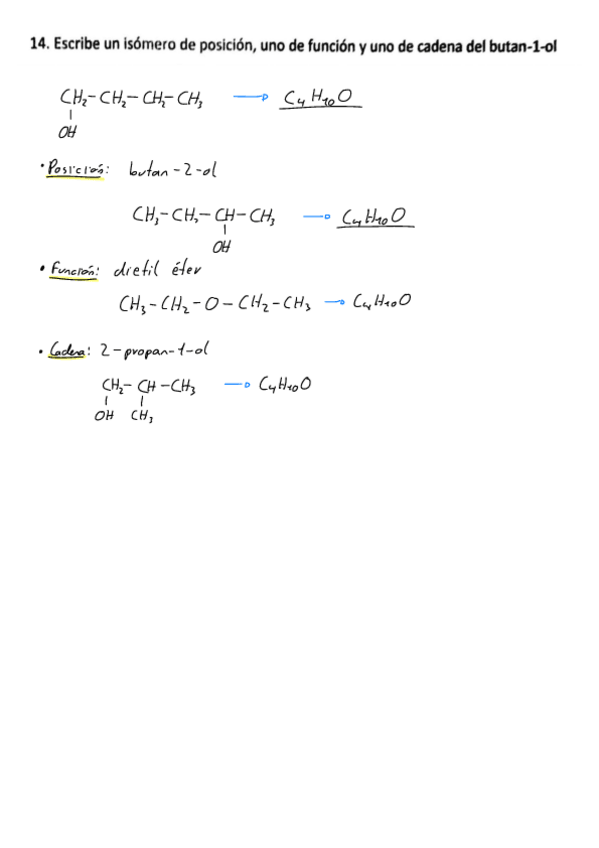 14. Escribe un isómero de posición, uno de función y uno de cadena del butan-1-ol
CH₂-CH₂-CH₂-CH₃ → C₄H₁₀O
OH
• Posición: butan-2-ol
CH₃-CH₂-CH-CH₃ → C₄H₁₀O
OH
• Función: dietil éter
CH₃-CH₂-O-CH₂-CH₃ → C₄H₁₀O
• Cadena: 2-propan-1-ol
CH₂-CH-CH₃ → C₄H₁₀O
OH CH₃